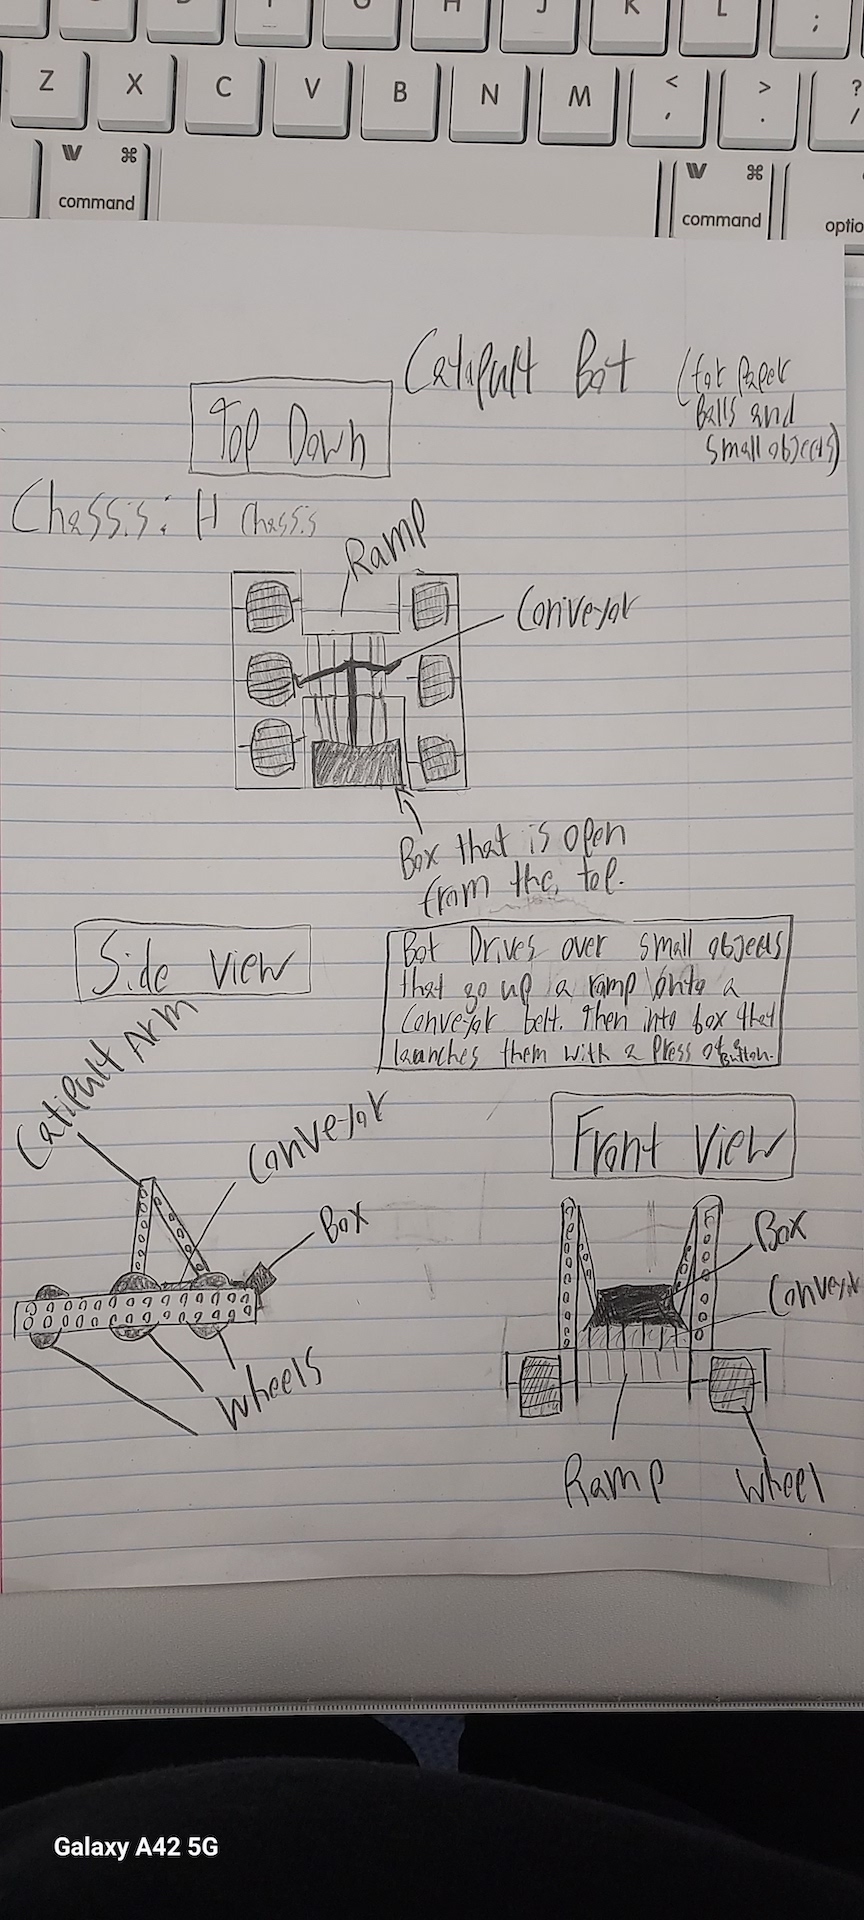 L
;
Z X C V B N M < , > . ? /
W ⌘ command
W ⌘ command
optio
Catipult Bot (for Paper
Balls and
small objects)
Top Down
Chassis: H Chassis
Ramp
Conveyor
Box that is open
from the top.
Side View
Bot Drives over small objects
that go up a ramp onto a
Conveyor belt. Then into box that
launches them with a Press of a Button.
Catipult Arm
Conveyor
Box
Wheels
Front View
Box
Conveyor
Ramp
Wheel
Galaxy A42 5G